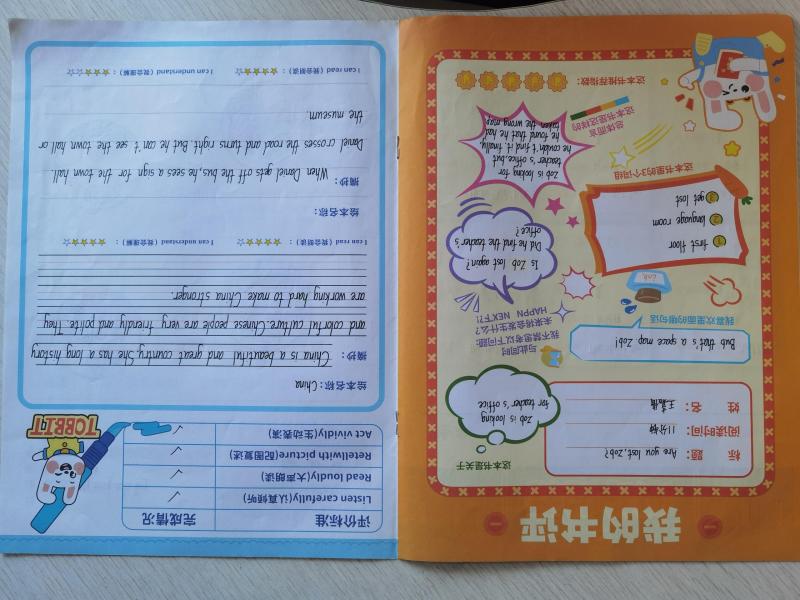 我的书评
标 题： Are you lost, Zob?
阅读时间： 11分钟
姓 名：
这本书是关于
Zob is looking
for teacher's office
我喜欢里面的哪句话
Bub that's a space map Zob!
与此同时
我不禁思考以下问题:
未来将会发生什么?
HAPPN NEXT?!
Is Zob lost again?
Did he find the teacher's
office?
这本书里的3个词组
1 first floor
2 language room
3 get lost
总体而言
这本书是这样的
Zob is looking for
teacher's office, but
he couldn't find it. finally,
he found that he had
taken the wrong map
这本书推荐指数：
评价标准 完成情况
Listen carefully(认真倾听) ✓
Read loudly(大声朗读) ✓
Retellwith picture(配图复述)
Act vividly(生动表演) ✓
TCBBIT
绘本名称： China
摘抄： China is a beautiful and great country. She has a long history
and colorful culture. Chinese people are very friendly and polite. They
are working hard to make China stronger.
I can read (我会朗读)： ★★★★☆ I can understand (我会理解)： ★★★★☆
绘本名称：
摘抄： When Daniel gets off the bus, he sees a sign for the town hall.
Daniel crosses the road and turns right. But he can't see the town hall or
the museum.
I can read (我会朗读)： ★★★★☆ I can understand (我会理解)： ★★★☆☆